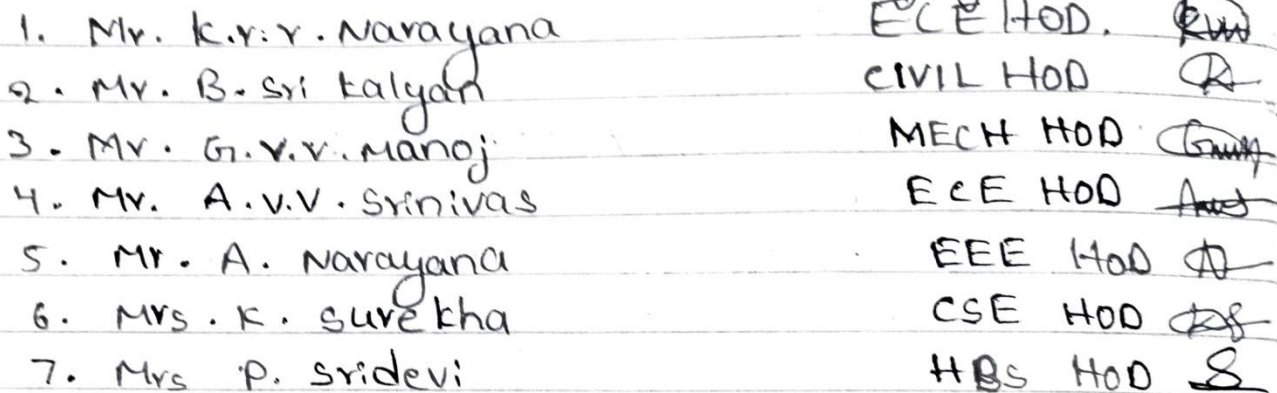 1. Mr. K.r.r. Narayana ECE HOD.
2. Mr. B. Sri kalyan CIVIL HOD
3. Mr. G.V.V. Manoj MECH HOD
4. Mr. A.V.V. Srinivas ECE HOD
5. Mr. A. Narayana EEE HOD
6. Mrs. K. Surekha CSE HOD
7. Mrs P. Sridevi HBS HOD